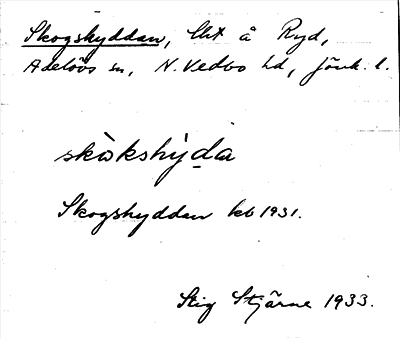 Skogshyddan, lht å Ryd,
Adelövs sn, N. Vedbo hd, Jönk. l.
skòkshỳda
Skogshyddan kb 1931.
Stig Stjärne 1933.